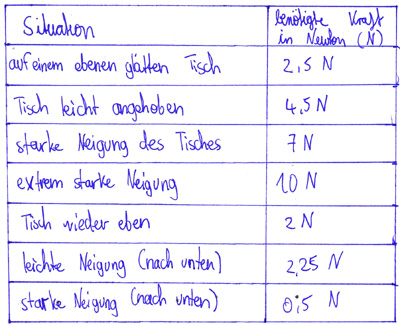 Situation
benötigte Kraft
in Newton (N)
auf einem ebenen glatten Tisch
2,5 N
Tisch leicht angehoben
4,5 N
starke Neigung des Tisches
7 N
extrem starke Neigung
10 N
Tisch wieder eben
2 N
leichte Neigung (nach unten)
2,25 N
starke Neigung (nach unten)
0,5 N